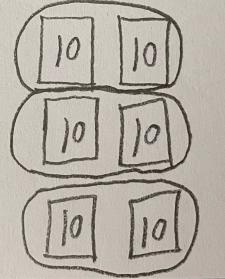 10 10
10 10
10 10